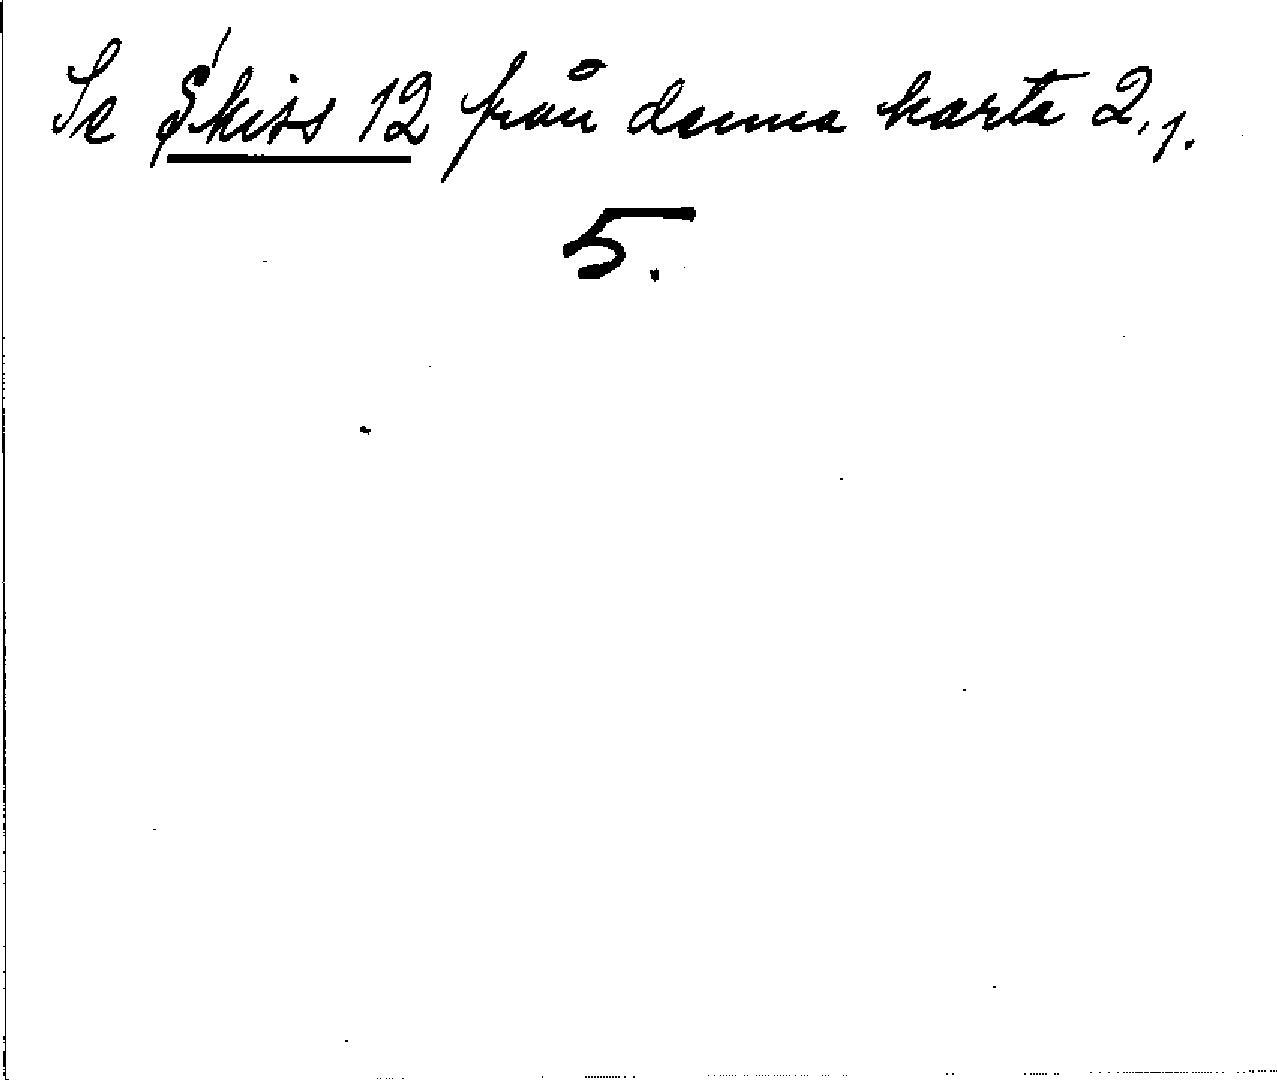 Se Skiss 12 från denna karta 2,1.
5.